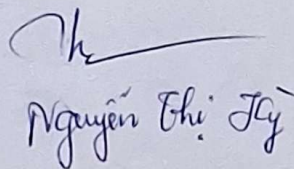 Nguyễn Thị Kỳ